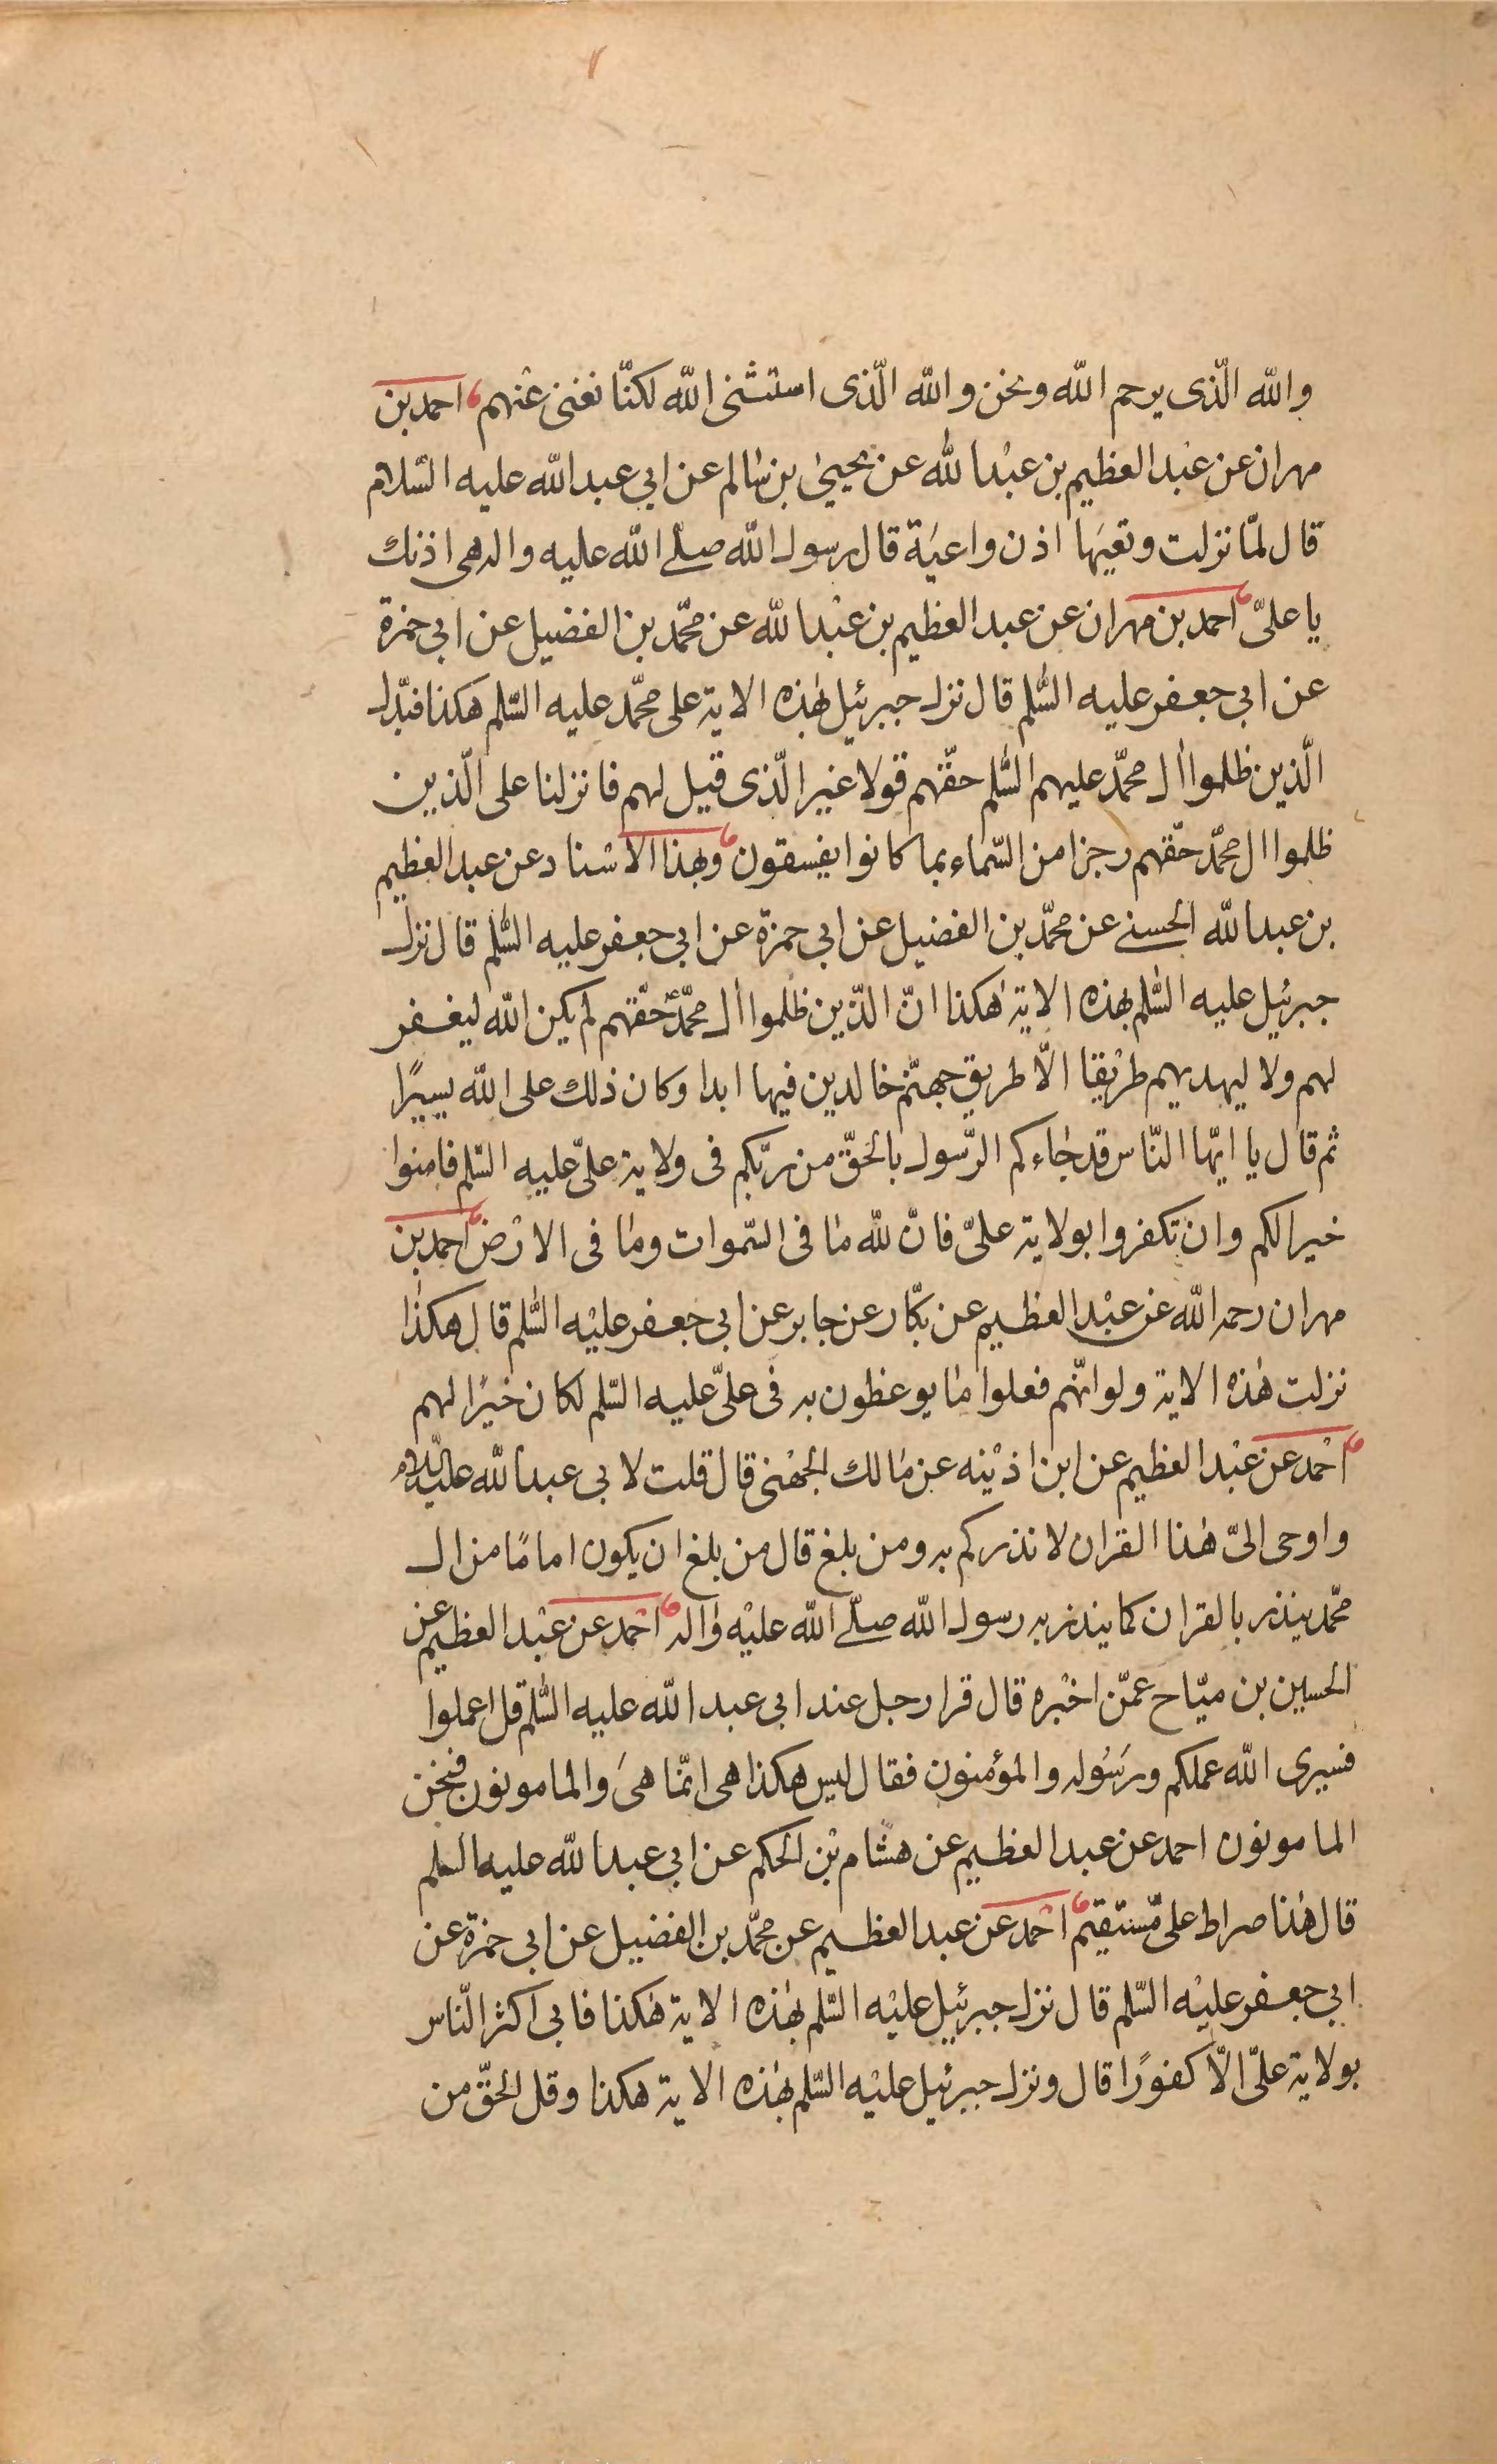 والله الّذى يرحم الله ونحن والله الّذى استثنى الله لكنّا نغنى عنهم احمد بن
مهران عن عبد العظيم بن عبد الله عن يحيى بن سالم عن ابي عبد الله عليه السّلام
قال لمّا نزلت وتعيها اذن واعية قال رسول الله صلّى الله عليه واله هى اذنك
يا علىّ احمد بن مهران عن عبد العظيم بن عبد الله عن محمّد بن الفضيل عن ابى حمزة
عن ابى جعفر عليه السّلم قال نزل جبرئيل بهذه الاية على محمّد عليه السّلم هكذا فبدّل
الّذين ظلموا ال محمّد عليهم السّلم حقّهم قولا غير الّذى قيل لهم فانزلنا على الّذين
ظلموا ال محمّد حقّهم رجزا من السّماء بما كانوا يفسقون وبهذا الاسناد عن عبد العظيم
بن عبد الله الحسنى عن محمّد بن الفضيل عن ابى حمزة عن ابى جعفر عليه السّلم قال نزل
جبرئيل عليه السّلم بهذه الاية هكذا انّ الذّين ظلموا ال محمّد حقّهم لم يكن الله ليغفر
لهم ولا ليهديهم طريقا الّا طريق جهنّم خالدين فيها ابدا وكان ذلك على الله يسيرًا
ثم قال يا ايّها النّاس قد جاءكم الرّسول بالحقّ من ربّكم فى ولاية علىّ عليه السّلم فامنوا
خيرا لكم وان تكفروا بولاية علىّ فانّ لله ما فى السّموات وما فى الارض احمد بن
مهران رحمه الله عن عبد العظيم عن بكّار عن جابر عن ابى جعفر عليه السّلم قال هكذا
نزلت هذه الاية ولو انّهم فعلوا ما يوعظون به فى علىّ عليه السّلم لكان خيرًا لهم
احمد عن عبد العظيم عن ابن اذينه عن مالك الجهنى قال قلت لابى عبد الله عليه السّلام
واوحى الىّ هذا القران لانذركم به ومن بلغ قال من بلغ ان يكون امامًا من ال
محمّد ينذر بالقران كما ينذر به رسول الله صلّى الله عليه واله احمد عن عبد العظيم عن
الحسين بن ميّاح عمّن اخبره قال قرا رجل عند ابى عبد الله عليه السّلم قل اعملوا
فسيرى الله عملكم ورسوله والمؤمنون فقال ليس هكذا هى انّما هى والمامونون فنحن
المامونون احمد عن عبد العظيم عن هشام بن الحكم عن ابى عبد الله عليه السلم
قال هذا صراط علىّ مستقيم احمد عن عبد العظيم عن محمّد بن الفضيل عن ابى حمزة عن
ابى جعفر عليه السّلم قال نزل جبرئيل عليه السّلم بهذه الاية هكذا فابى اكثر النّاس
بولاية علىّ الّا كفورًا قال ونزل جبرئيل عليه السّلم بهذه الاية هكذا وقل الحقّ من